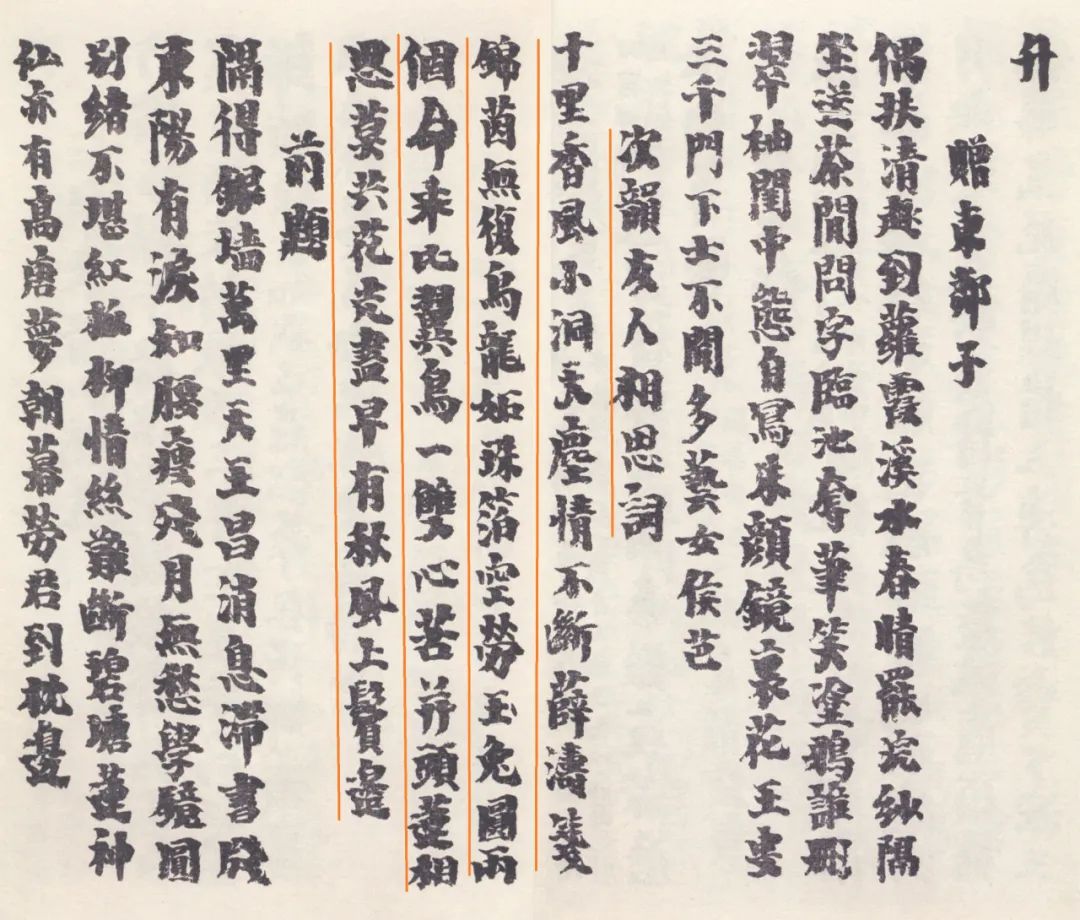 升
贈東鄰子
偶扶清興到蘿霞溪水春晴罷浣紗隔
坐送茶閒問字臨池奪筆笑塗鴉誰刪
翠袖閨中態自寫朱顏鏡裏花王吏
三千門下士不聞多藝女侯芭
次韻友人相思詞
十里香風小洞天塵情不斷薛濤箋
錦茵無復烏龍妬珠箔空勞玉兔圓兩
個命來比翼鳥一雙心苦并頭蓮相
思莫共花老盡早有秋風上鬢邊
前題
隔得銀墻萬里天王昌消息滯書牋
東陽有淚知腰瘦殘月無愁學靨圓
別緒不堪紅板柳情絲難斷碧塘蓮神
仙亦有高唐夢朝暮勞君到枕邊